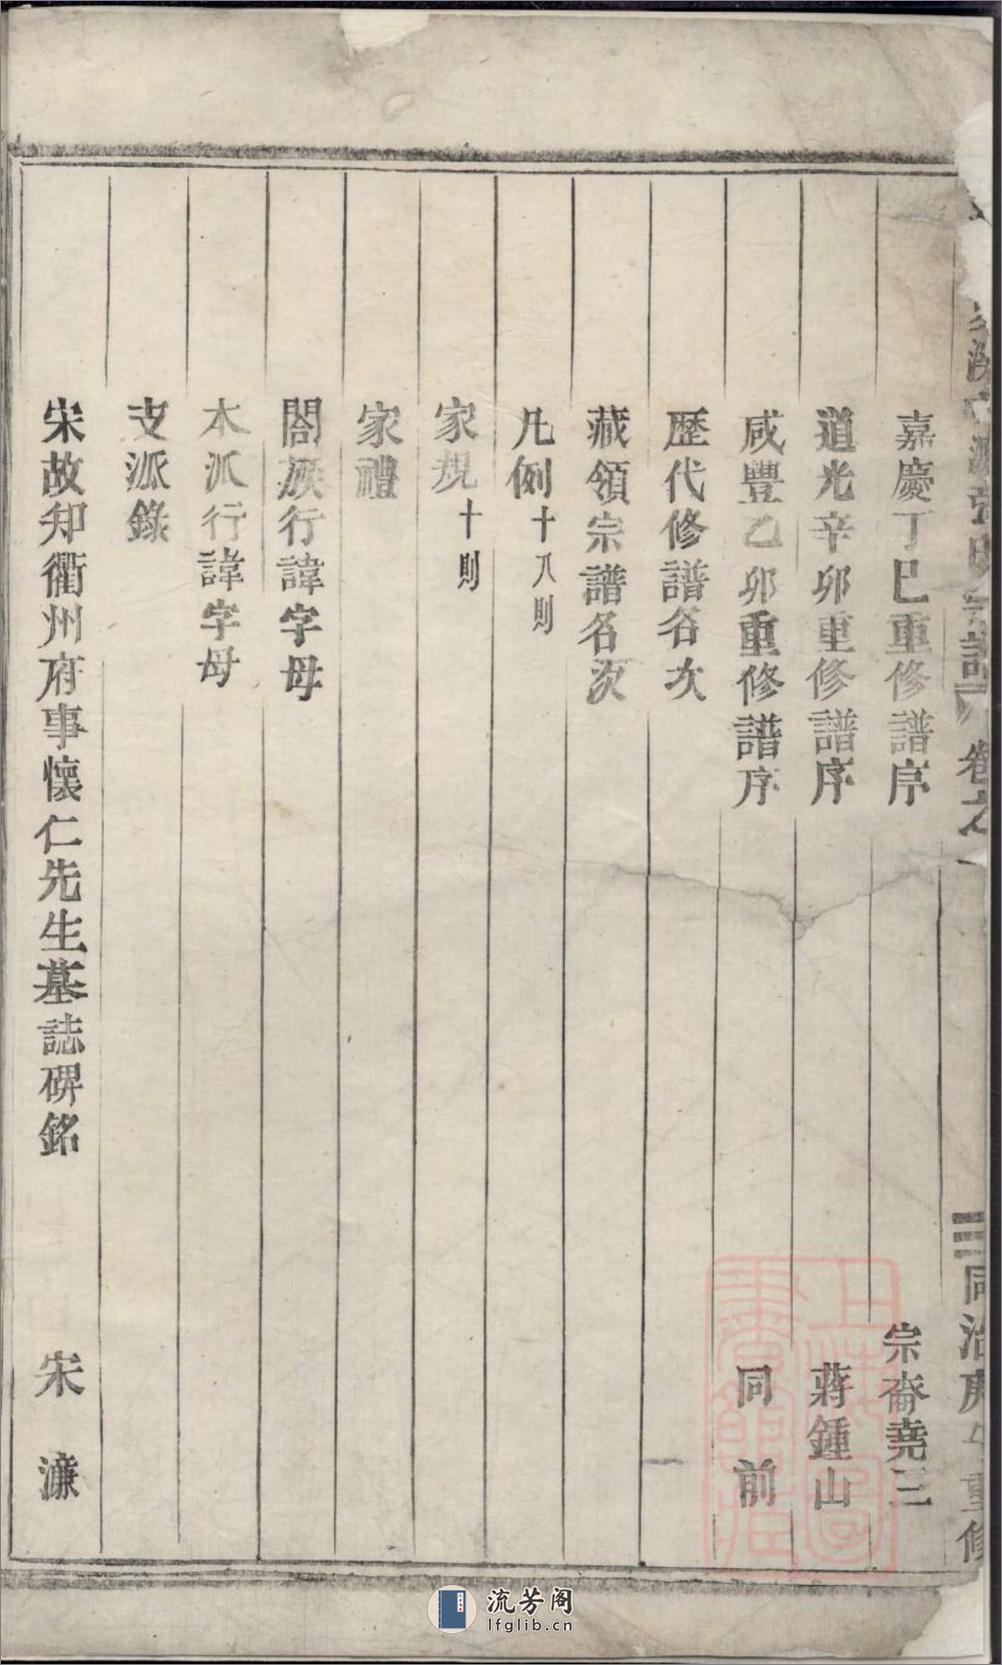 嘉慶丁巳重修譜序 宗裔堯三
道光辛卯重修譜序 蔣鍾山
咸豐乙卯重修譜序 同前
歷代修譜名次
藏領宗譜名次
凡例十八則
家規十則
家禮
閤族行諱字母
本派行諱字母
支派錄
宋故知衢州府事懷仁先生墓誌碑銘 宋濂
氏宗譜 卷之一
同治庚午重修
上海圖書館藏
流芳阁
lfglib.cn